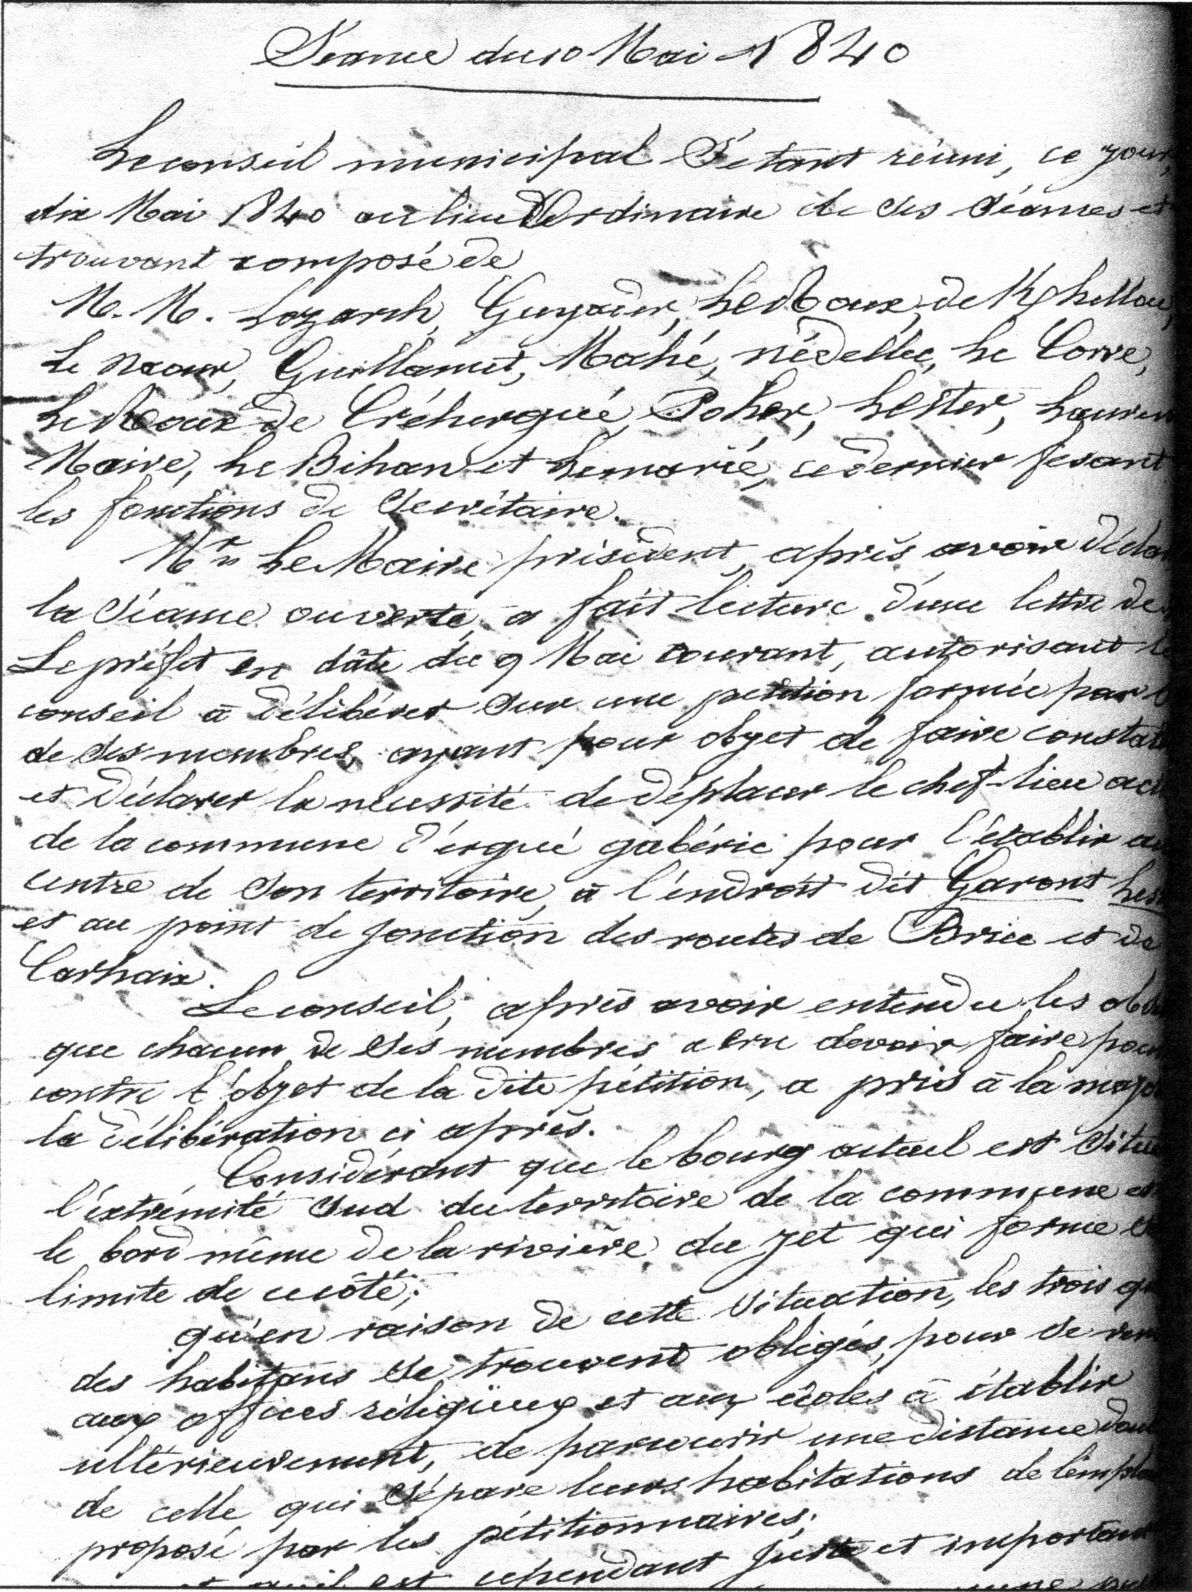 Séance du 10 Mai 1840
Le conseil municipal s'étant réuni, ce jour,
dix Mai 1840 au lieu Ordinaire de ses séances et
trouvant composé de
M. M. Lozarch, Guyader, Le Roux, de Kerhellou,
Le Naour, Guillamet, Mahé, Nédellec, Le Corre,
Le Roux de Créhergué, Poher, Lester, Lauren
Maire, Le Bihan et Lemarié, ce dernier fesant
les fonctions de Secrétaire.
Mr Le Maire président, après avoir déclar
la séance ouverte, a fait lecture d'une lettre de
Le préfet en date du 9 Mai courant, autorisant le
conseil à délibérer sur une petition formée par
de ses membres, ayant pour objet de faire constat
et déclarer la nécessité de déplacer le chef-lieu act
de la commune d'érgué gabéric pour l'établir au
centre de son territoire, à l'endroit dit Garont
et au point de jonction des routes de Briec et de
Carhaix.
Le conseil, après avoir entendu les obs
que chacun de ses membres a cru devoir faire pour
contre l'objet de la dite pétition, a pris à la majo
la délibération ci après.
Considérant que le bourg actuel est situé
l'éxtrémité sud du territoire de la commune
le bord même de la rivière du Jet qui forme
limite de ce côté;
qu'en raison de cette situation, les trois qu
des habitans se trouvent obligés, pour se ren
aux offices réligïeux et aux écoles à établir
ultérieurement, de parcourir une distance dou
de celle qui sépare leurs habitations de l'empla
proposé par les pétitionnaires;
est cependant juste et important